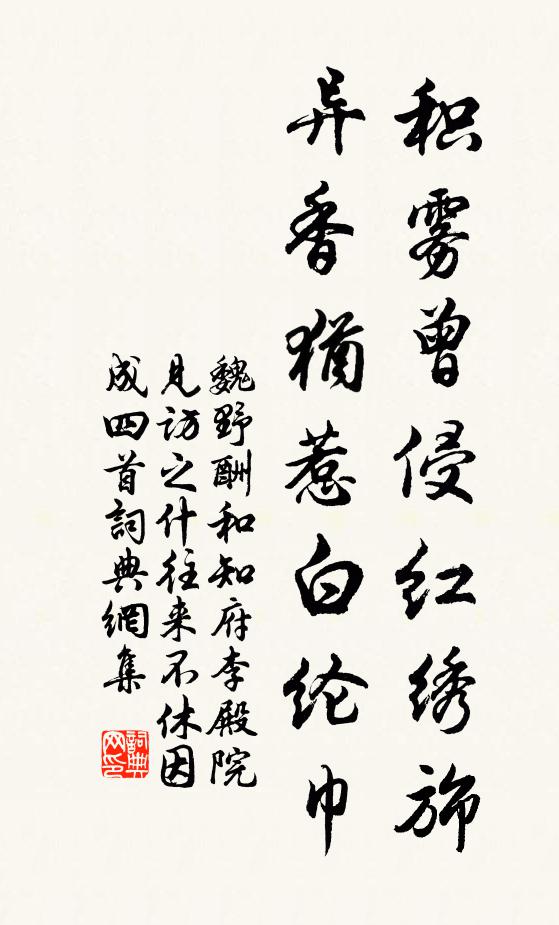 积雾曾侵红绣旆
异香犹惹白纶巾
魏野酬和知府李殿院
见访之什往来不休因
成四首詞典網集
詞典网印